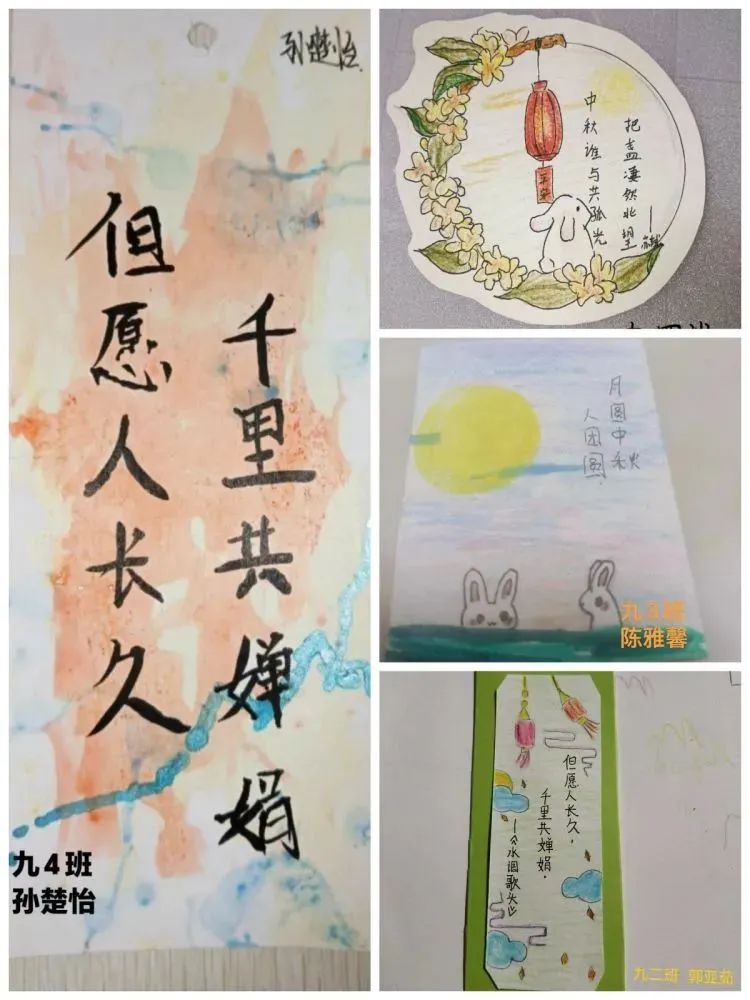 孙楚怡
但愿人长久
千里共婵娟
九4班
孙楚怡
中秋谁与共孤光
把盏凄然北望
——苏轼
平安
月圆中秋
人团圆.
九3班
陈雅馨
但愿人长久，
千里共婵娟.
——《水调歌头》
九二班 郭亚茹